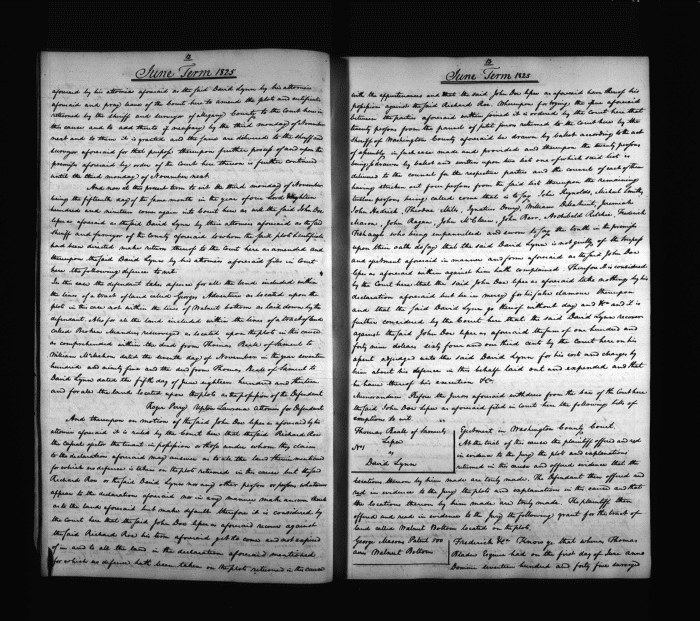 June Term 1825
aforesaid by his attornies aforesaid as the said David Lynn by his attornies
aforesaid and pray leave of the Court here to amend the plots and certificates
returned by the sheriff and surveyor of Allegany County to the Court here in
this cause and to add thereto if necessary by the third monday of November
next and to them it is granted and the same are delivered to the sheriff and
surveyor aforesaid for that purpose thereupon further process of and upon the
premises aforesaid by order of the Court here thereon is further continued
until the third monday of November next
And now at this present term to wit the third monday of November
being the fifteenth day of the same month in the year of our Lord eighteen
hundred and nineteen come again into Court here as well the said John Doe
lessee as aforesaid as the said David Lynn by their attornies aforesaid as the said
Sheriff and surveyor of the County aforesaid to whom the said plots and certificate
had been directed make return thereof to the Court here as amended and
thereupon the said David Lynn by his attornies aforesaid files in Court
here the following defence to wit
In this case the defendant takes defence for all the land included within
the lines of a tract of land called Georges Adventure as located upon the
plots in the case not within the lines of Walnut bottom as laid down by the
defendant Also for all the land included within the lines of a tract of land
called Broken Islands resurveyed as located upon the plots in this cause
as comprehended within the deed from Thomas Beall of Samuel to
William McMahon dated the seventh day of November in the year seventeen
hundred and ninety five and the deed from Thomas Beall of Samuel to
David Lynn dated the fifth day of June eighteen hundred and thirteen
and for all the lands located upon the plots as the possession of the Defendant
Roger Perry Upton Lawrence attornies for Defendant
And thereupon on motion of the said John Doe lessee as aforesaid by his
attornies aforesaid it is ruled by the Court here that the said Richard Roe
the Casual ejector the tenant in possession or those under whom they claim
to the declaration aforesaid may answer as to all the land therein mentioned
for which no defence is taken on the plots returned in the cause but the said
Richard Roe or the said David Lynn nor any other person or persons whatever
appear to the declaration aforesaid nor in any manner make answer thereto
as to the lands aforesaid but make default therefore it is considered by
the Court here that the said John Doe lessee as aforesaid recover against
the said Richard Roe his term aforesaid yet to come and not expired
of in and to all the land in the declaration aforesaid mentioned
for which no defence hath been taken on the plots returned in the cause
June Term 1825
with the appurtenances and that the said John Doe lessee as aforesaid have thereof his
possession against the said Richard Roe. Whereupon for trying the issue aforesaid
between the parties aforesaid within joined it is ordered by the Court here that
twenty persons from the pannel of petit jurors returned to the Court here by the
Sheriff of Washington County aforesaid be drawn by ballot according to the act
of assembly in such case made and provided and thereupon the twenty persons
being so drawn by ballot and written upon two lists one of which said list is
delivered to the counsel for the respective parties and the counsel of each of them
having stricken out four persons from the said list thereupon the remaining
twelve persons being called came that is to say John Reynolds, Michael Smith,
John Hedrick, Theodore Mills, Ignatius Drury, William Blackburn, Jeremiah
Mason, John Ragan, Joel Newcomer, John Barr, Archibald Ritchie, Frederick
Fishaugh who being empannelled and sworn to say the truth in the premises
upon their oath do say that the said David Lynn is not guilty of the trespass
and ejectment aforesaid in manner and form aforesaid as the said John Doe
lessee as aforesaid within against him hath complained. Therefore it is considered
by the Court here that the said John Doe lessee as aforesaid take nothing by his
declaration aforesaid but be in mercy for his false clamour thereupon
and that the said David Lynn go thereof without day and &c and it is
further considered by the Court here that the said David Lynn recover
against the said John Doe lessee as aforesaid the sum of one hundred and
forty nine dollars sixty four and one third cents by the Court here on his
assent adjudged unto the said David Lynn for his costs and charges by
him about his defence in this behalf laid out and expended and that
he have thereof his execution &c.
Memorandum. Before the jurors aforesaid withdrew from the bar of the Court here
the said John Doe lessee as aforesaid filed in Court here the following bills of
exceptions to wit
Thomas Bealls of Samuels
Lessee
No 1
vs
David Lynn
Ejectment in Washington County Court.
At the trial of this cause the plaintiff offered and read
in evidence to the jury the plots and explanations
returned in this cause and offered evidence that the
locations thereon by him made are truly made. The Defendant then offered and
read in evidence to the jury the plots and explanations in the cause and that
the locations thereon by him made are truly made. The plaintiff then
offered and read in evidence to the jury the following grant for the tract of
land called Walnut Bottom located on the plots
George Masons Patent 500
acres Walnut Bottom
Frederick &c. Know ye that whereas Thomas
Bladen Esquire had on the first day of June anno
Domini seventeen hundred and forty five surveyed